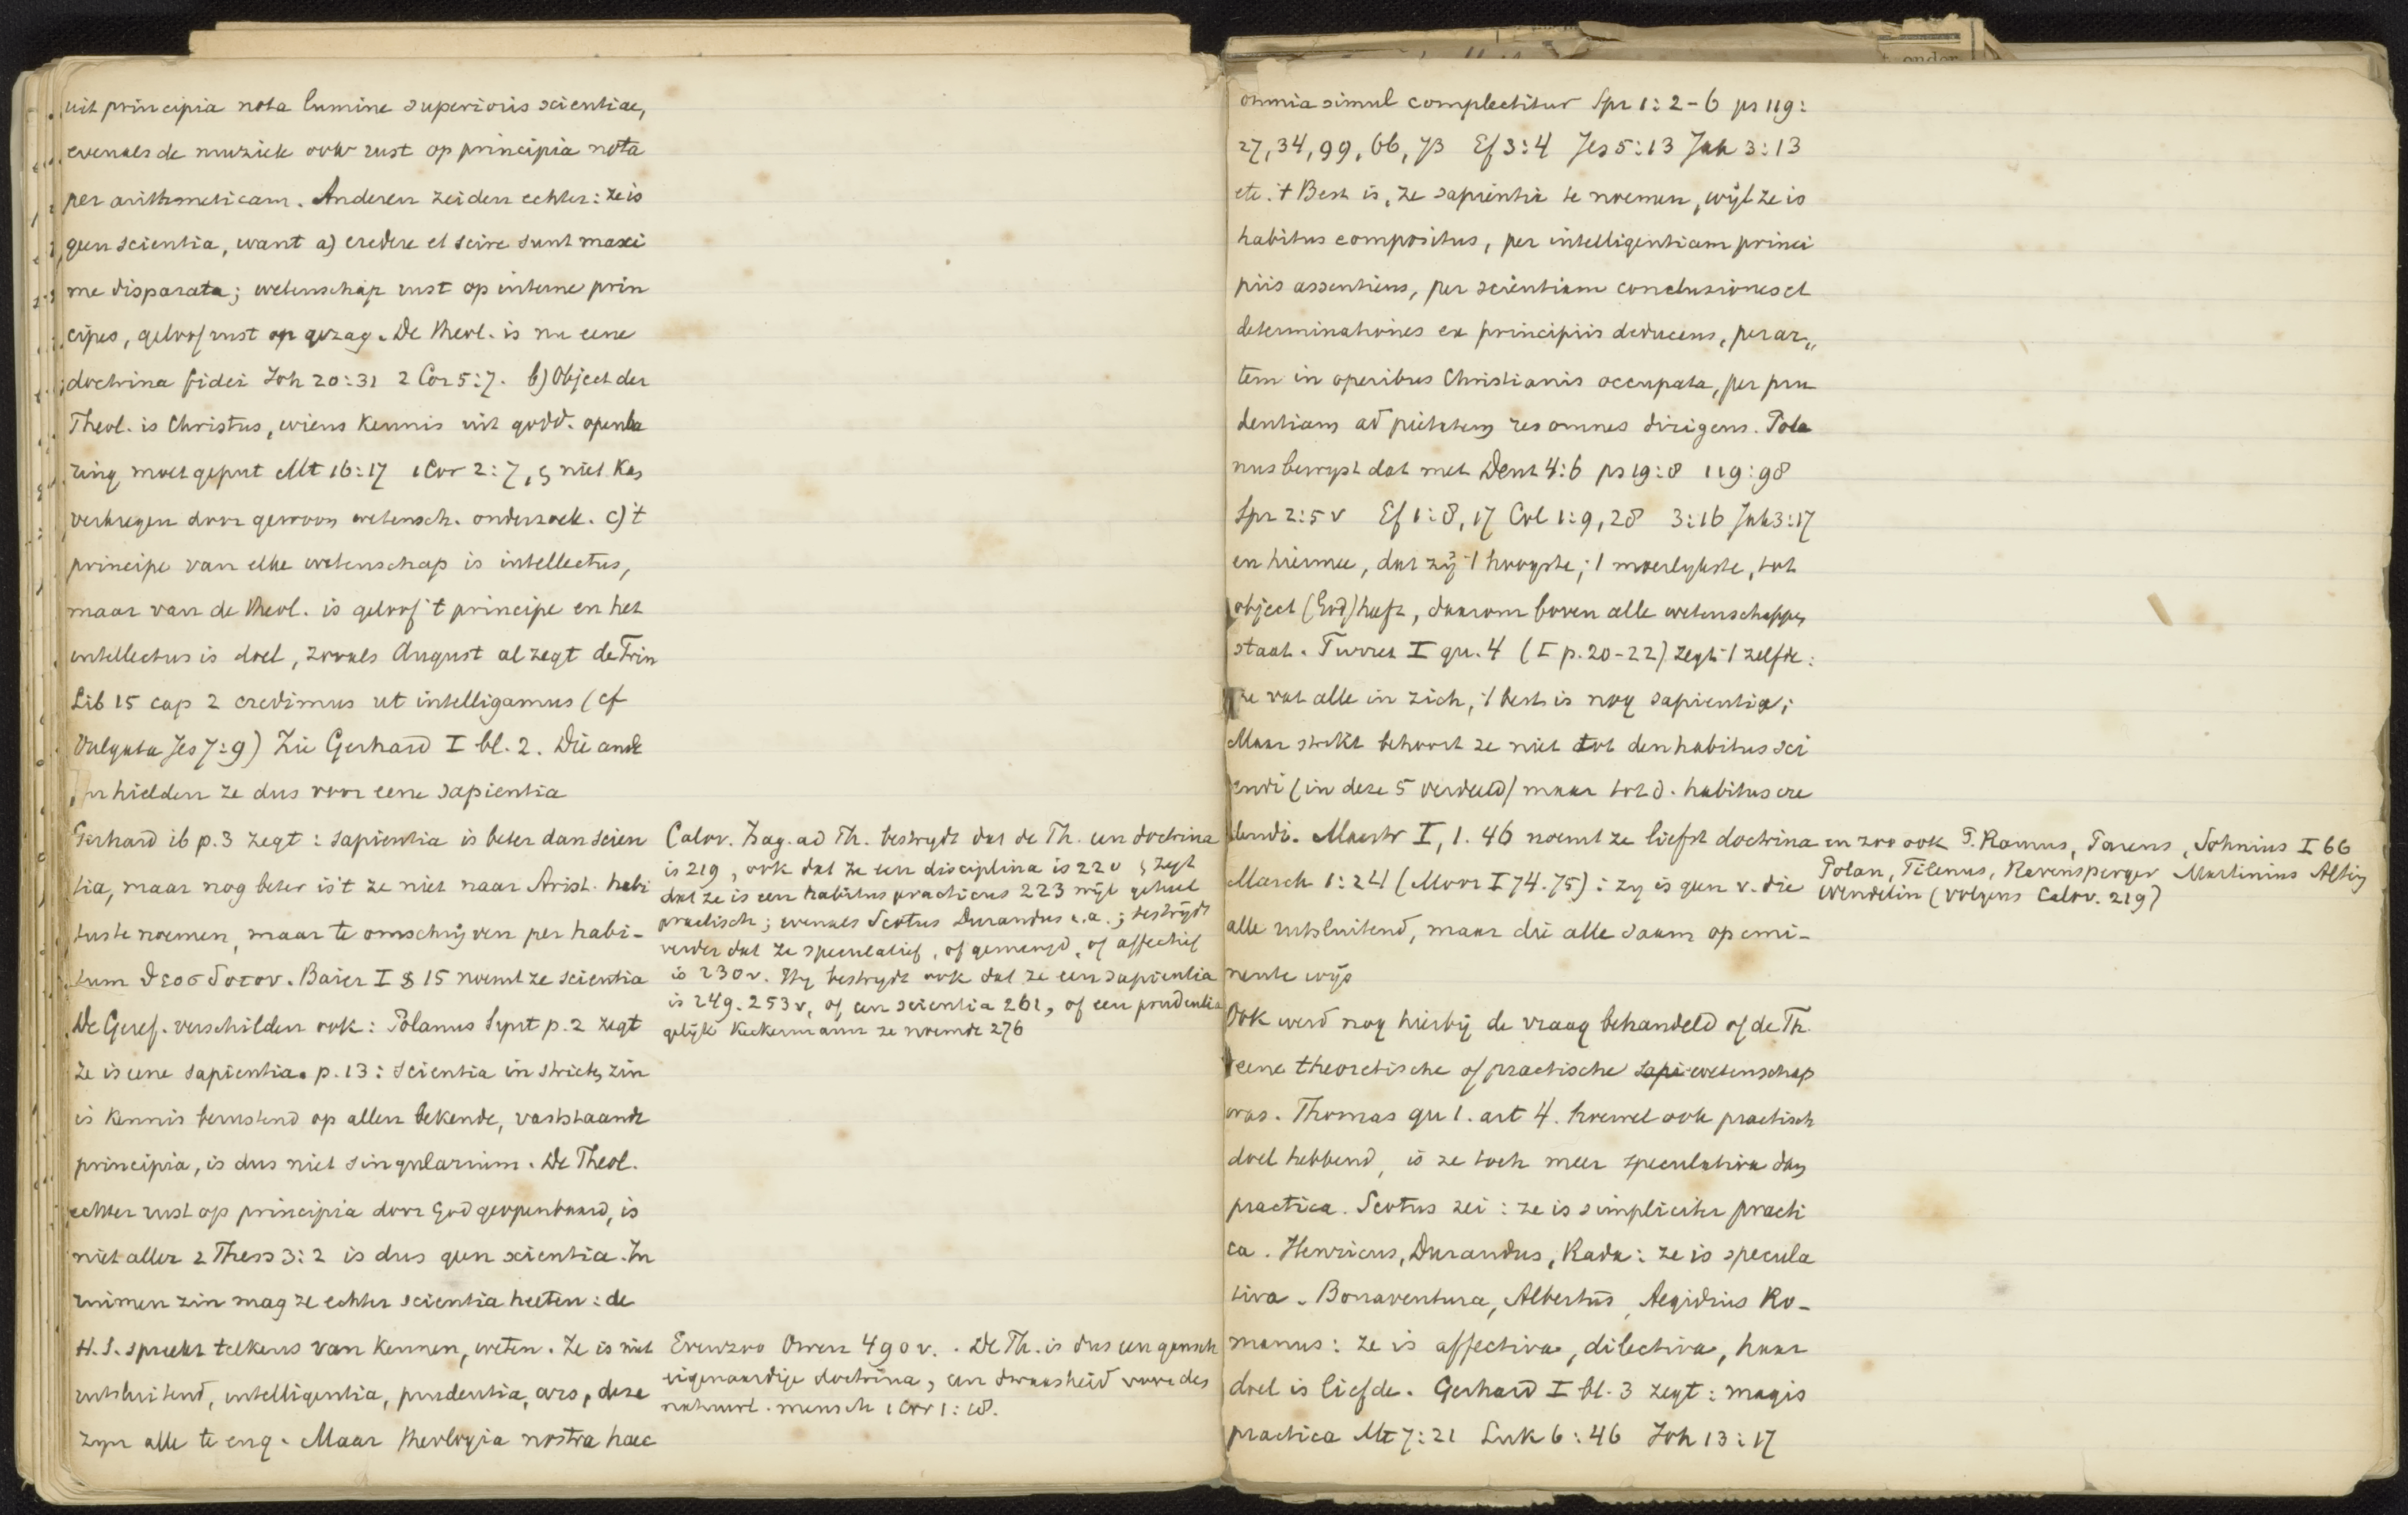 uit principia nota lumine superioris scientiae,
evenals de muziek ook rust op principia nota
per arithmeticam. Anderen zeiden echter: ze is
geen scientia, want a) credere et scire sunt maxi
me disparata; wetenschap rust op interne prin
cipes, geloof rust op gezag. De theol. is nu eene
doctrina fidei Joh 20:31 2 Cor 5:7. b) Object der
Theol. is Christus, wiens kennis uit godd. openba
ring moet geput Mt 16:17 1 Cor 2:7, en niet kan
verkregen door gewoon wetensch. onderzoek. c) 't
principe van elke wetenschap is intellectus,
maar van de theol. is geloof 't principe en het
intellectus is doel, zooals August al zegt de Trin
Lib 15 cap 2 credimus ut intelligamus (cf
Vulgata Jes 7:9) Zie Gerhard I bl. 2. Die ande
ren hielden ze dus voor eene sapientia
Gerhard ib p. 3 zegt: sapientia is beter dan scien
tia, maar nog beter is 't ze niet naar Arist. habi
tus te noemen, maar te omschrijven per habi-
tum θεοσδοτον. Baier I § 15 noemt ze scientia
De Geref. verschilden ook: Polanus Synt p. 2 zegt
ze is eene sapientia. p. 13: scientia in stricten zin
is kennis berustend op allen bekende, vaststaande
principia, is dus niet singularium. De Theol.
echter rust op principia door God geopenbaard, is
niet aller 2 Thess 3:2 is dus geen scientia. In
ruimen zin mag ze echter scientia heeten: de
H. S. spreekt telkens van kennen, weten. Ze is niet
uitsluitend, intelligentia, prudentia, ars, deze
zijn alle te eng. Maar theologia nostra haec
Calov. Isag. ad Th. bestrijdt dat de Th. een doctrina
is 219, ook dat ze een disciplina is 220 en zegt
dat ze is een habitus practicus 223 wijl geheel
practisch; evenals Scotus Durandus e.a.; bestrijdt
verder dat ze speculatief, of gemengd, of affectief
is 230v. Hij bestrijdt ook dat ze een sapientia
is 249. 253v, of een scientia 261, of een prudentia
gelijk Keckermann ze noemde 276
Evenzoo Owen 490v. . De Th. is dus een gansch
eigenaardige doctrina, een dwaasheid voor den
natuurl. mensch 1 Cor 1:18.
omnia simul complectitur Spr 1:2-6 ps 119:
27, 34, 99, 66, 73 Ef 3:4 Jes 5:13 Jak 3:13
etc. 't Best is, ze sapientia te noemen, wijl ze is
habitus compositus, per intelligentiam princi
piis assentiens, per scientiam conclusiones et
determinationes ex principiis deducens, per ar„
tem in operibus Christianis occupata, per pru
dentiam ad pietatem res omnes dirigens. Pola
nus bewijst dat met Deut 4:6 ps 19:8 119:98
Spr 2:5v Ef 1:8, 17 Col 1:9, 28 3:16 Jak 3:17
en hiermee, dat zij 't hoogste, 't moeilijkste, tot
object (God) heeft, daarom boven alle wetenschappen
staat. Turret I qu. 4 (I p. 20-22) zegt 't zelfde:
ze vat alle in zich, 't best is nog sapientia;
Maar strikt behoort ze niet tot den habitus sci
endi (in deze 5 verdeeld) maar tot d. habitus cre
dendi. Mastr I, 1. 46 noemt ze liefst doctrina en zoo ook P. Ramus, Parens, Sohnius I 66
Polan, Tilenus, Ravensperger Martinius Alting
Wendelin (volgens Calov. 219)
March 1:24 (Moor I 74. 75): zij is geen v. die
alle uitsluitend, maar die alle saam op emi-
nente wijs
Ook werd nog hierbij de vraag behandeld of de Th.
eene theoretische of practische sapi wetenschap
was. Thomas qu 1. art 4. hoewel ook practisch
doel hebbend, is ze toch meer speculativa dan
practica. Scotus zei: ze is simpliciter practi
ca. Henricus, Durandus, Rada: ze is specula
tiva. Bonaventura, Albertus, Aegidius Ro-
manus: ze is affectiva, dilectiva, haar
doel is liefde. Gerhard I bl. 3 zegt: magis
practica Mt 7:21 Luk 6:46 Joh 13:17